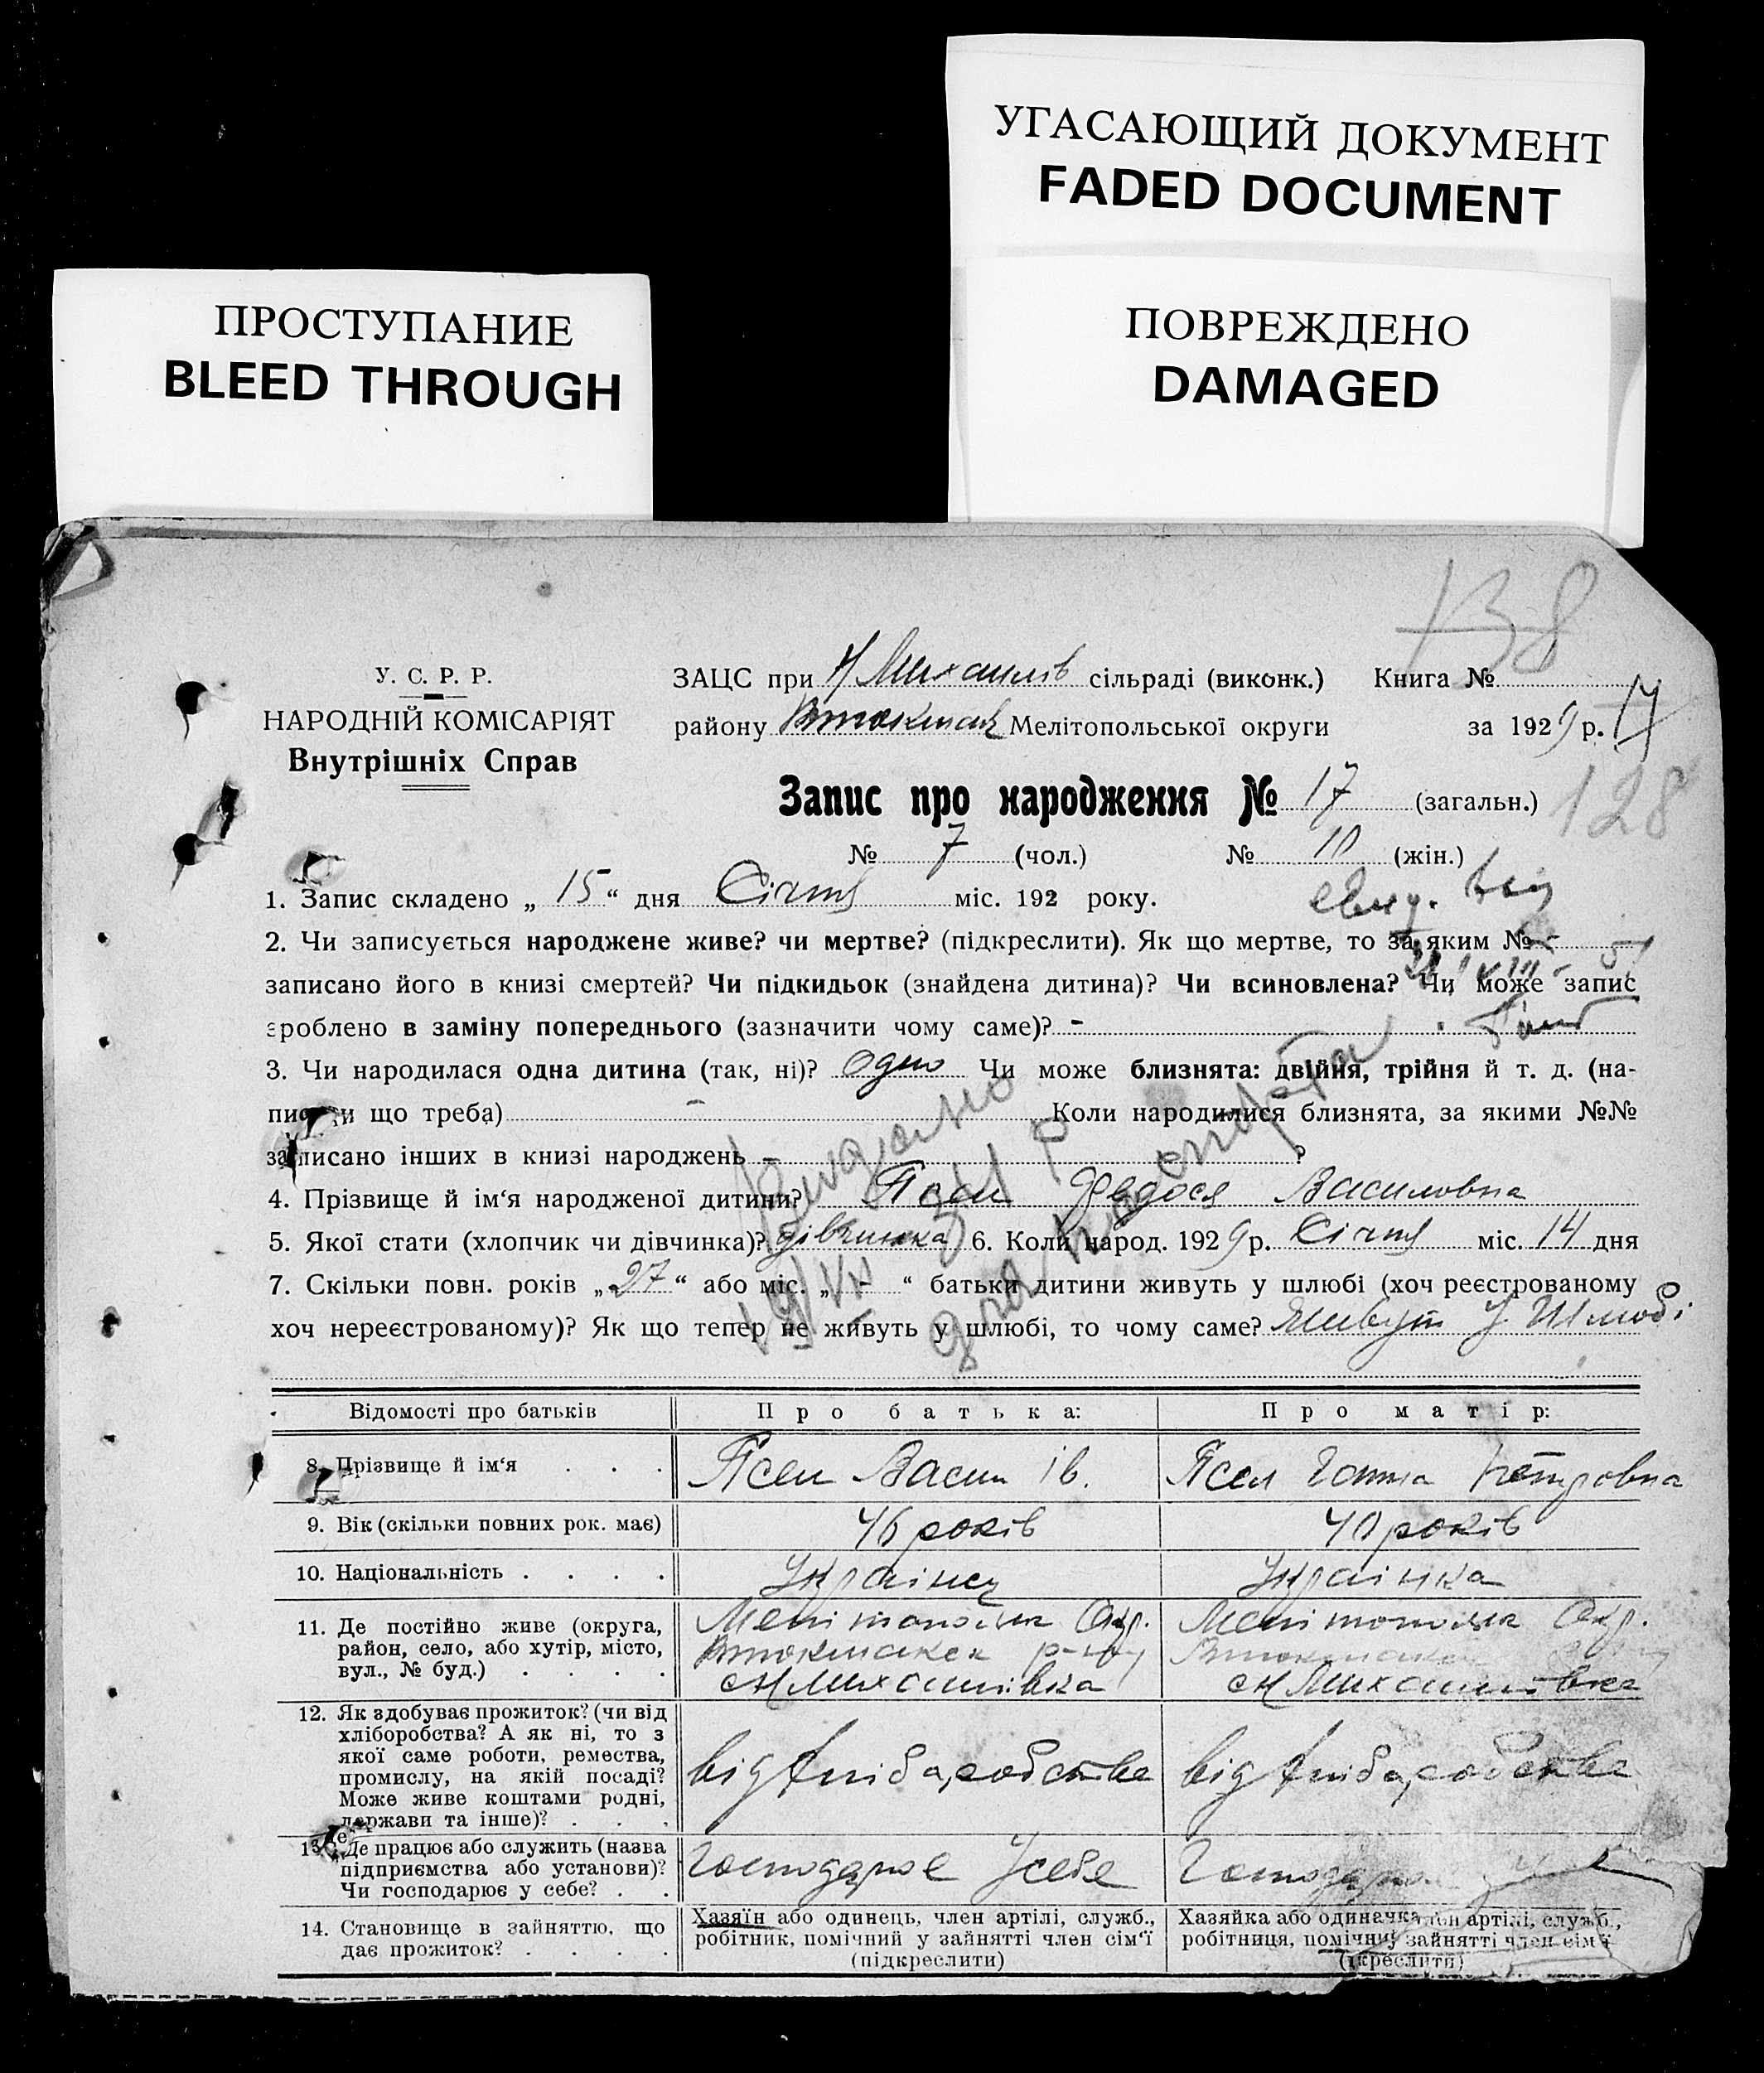 УГАСАЮЩИЙ ДОКУМЕНТ
FADED DOCUMENT
ПРОСТУПАНИЕ
BLEED THROUGH
ПОВРЕЖДЕНО
DAMAGED
138
У. С. Р. Р.
НАРОДНІЙ КОМІСАРІЯТ
Внутрішніх Справ
ЗАЦС при Н Михайлів сільраді (виконк.) Книга №
району Втокмац Мелітопольської округи за 1929 р. 17
Запис про народження № 17 (загальн.)
128
№ 7 (чол.) № 10 (жін.)
1. Запис складено „ 15 “ дня Січня міс. 192 року.
2. Чи записується народжене живе? чи мертве? (підкреслити). Як що мертве, то за яким № -
записано його в книзі смертей? Чи підкидьок (знайдена дитина)? Чи всиновлена? Чи може запис
зроблено в заміну попереднього (зазначити чому саме)? -
3. Чи народилася одна дитина (так, ні)? Одно Чи може близнята: двійня, трійня й т. д. (на-
писати що треба) - Коли народилися близнята, за якими №№
записано інших в книзі народжень - ?
4. Прізвище й ім‘я народженої дитини? Псел Федося Василовна
5. Якої стати (хлопчик чи дівчинка)? дівчинка 6. Коли народ. 1929 р. Січня міс. 14 дня
7. Скільки повн. років „27“ або міс. „ - “ батьки дитини живуть у шлюбі (хоч реєстрованому
хоч нереєстрованому)? Як що тепер не живуть у шлюбі, то чому саме? Живуть У Шлюбі
Відомості про батьків Про батька: Про матір:
8. Прізвище й ім‘я . . . Псел Васил Ів. Псел Ганна Петровна
9. Вік (скільки повних рок. має) 46 років 40 років
10. Національність . . . . Українец Українка
11. Де постійно живе (округа, район, село, або хутір, місто, вул., № буд.) . . . .
Мелітопольск Окр. Втокмакск р-ну с Н Михайлівка
Мелітопольск Окр. Втокмакск с Н Михайлівка
12. Як здобуває прожиток? (чи від хліборобства? А як ні, то з якої саме роботи, ремества, промислу, на якій посаді? Може живе коштами родні, держави та інше)? . . .
від хлібаробства від хлібаробства
13. Де працює або служить (назва підприємства або установи)? Чи господарює у себе? . .
Господарює Усебе Господарює
14. Становище в зайняттю, що дає прожиток? . . . .
Хазяїн або одинець, член артілі, служб., робітник, помічний у зайнятті член сім‘ї (підкреслити)
Хазяйка або одиначка член артілі, служб., робітниця, помічниу зайнятті член сім‘ї (креслити)